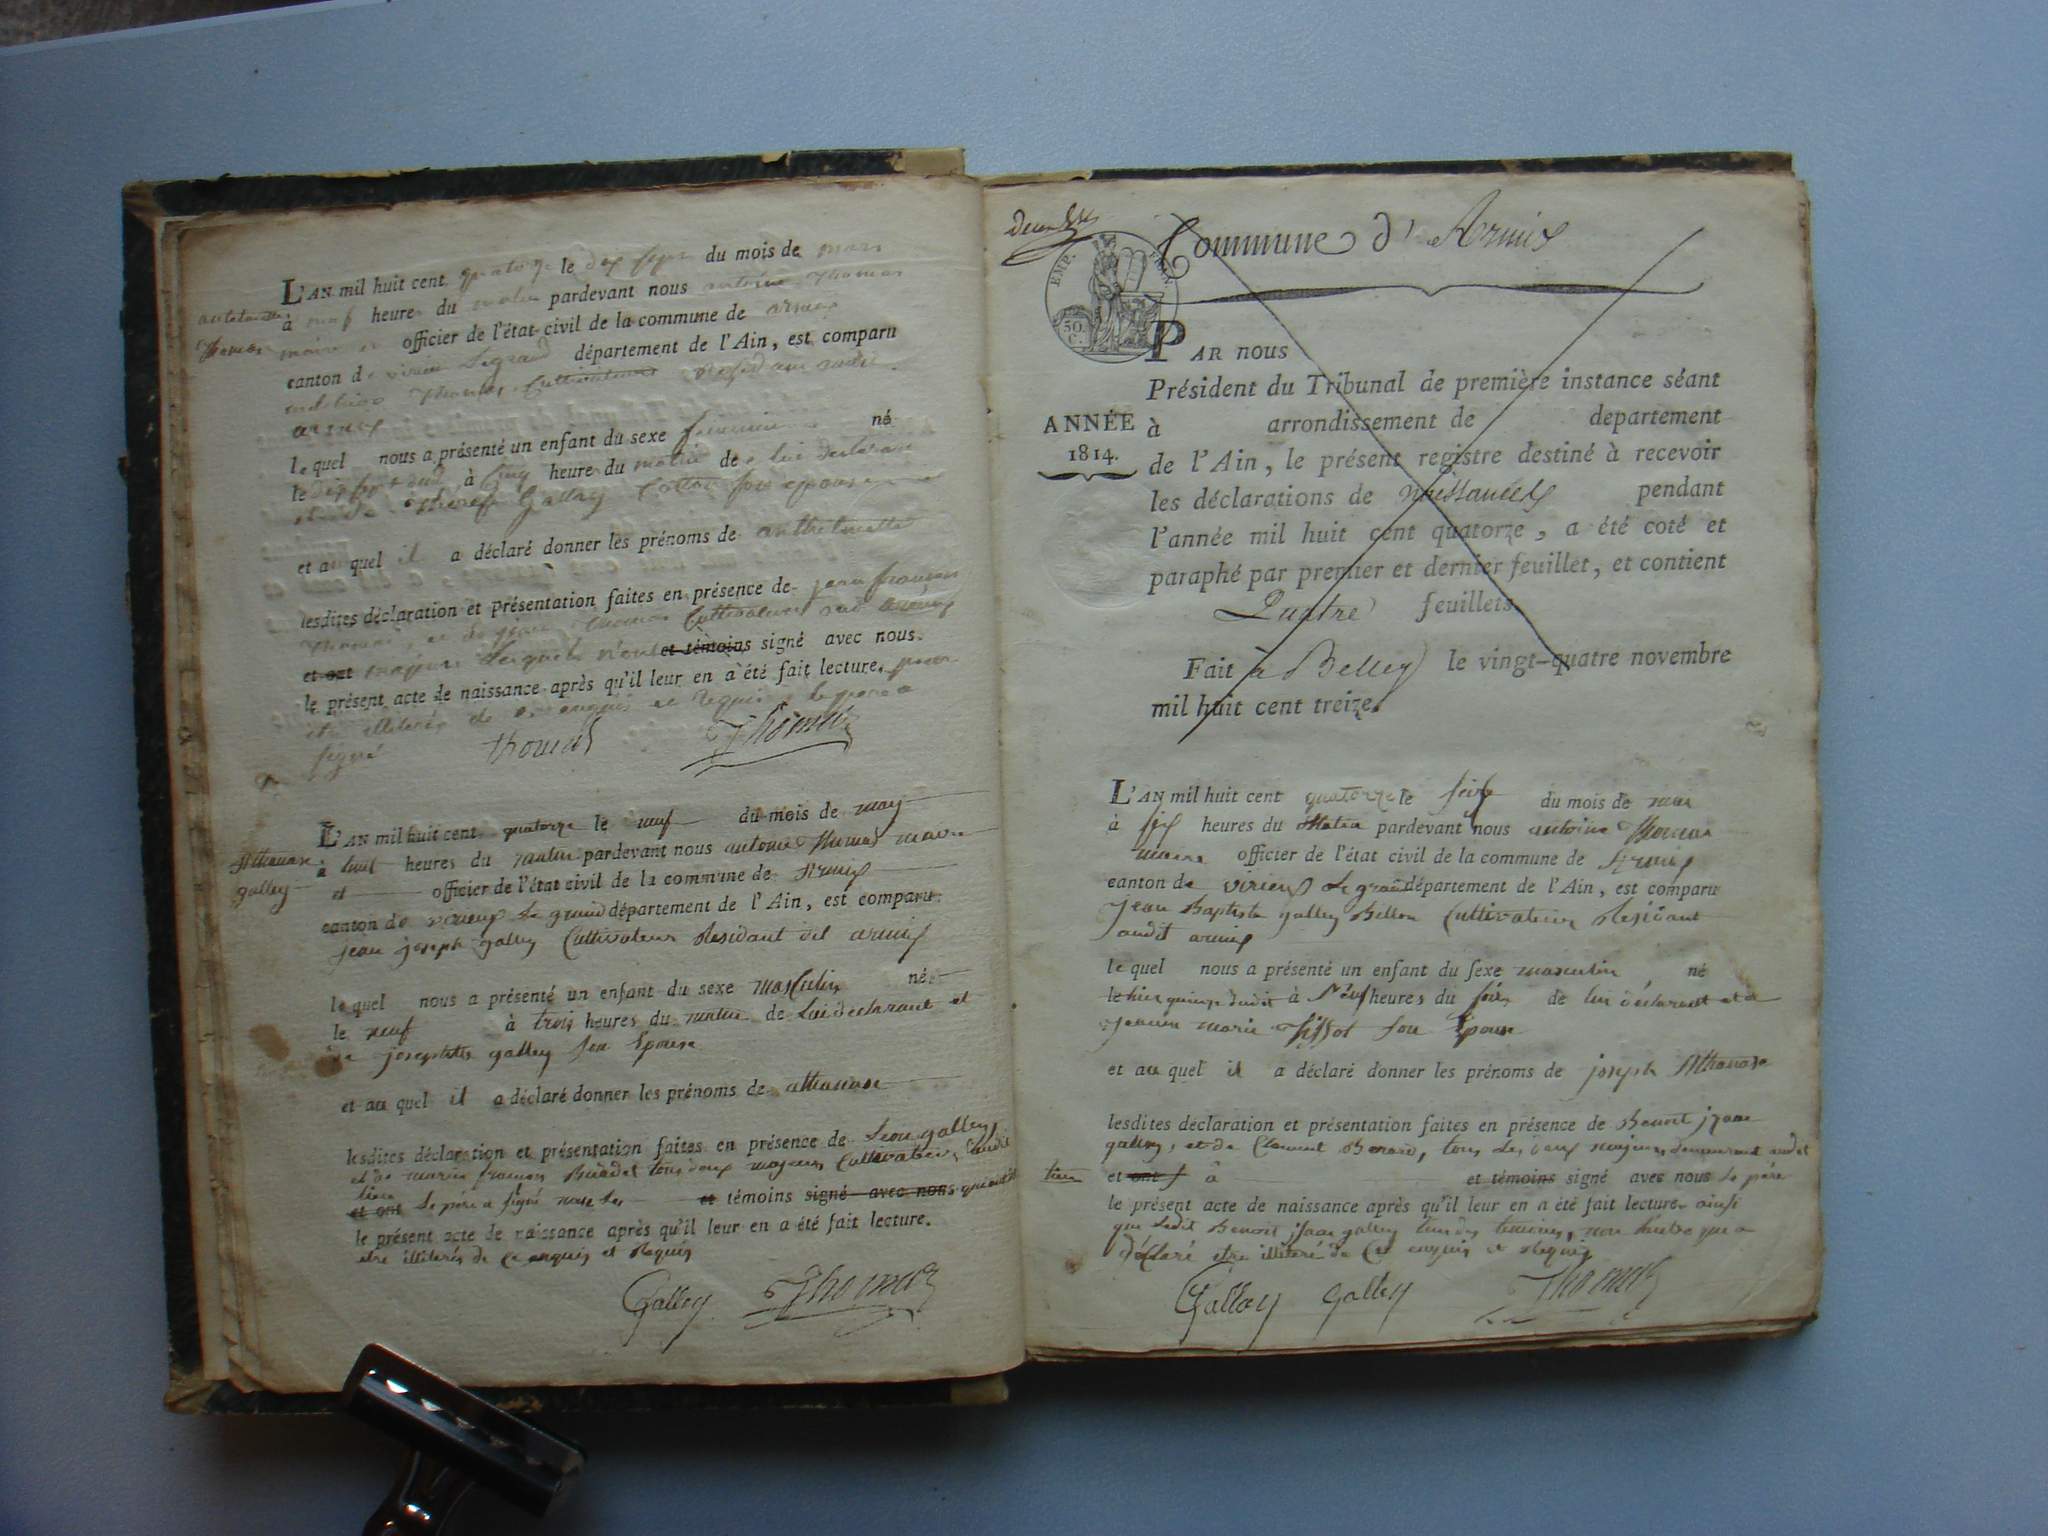 L'AN mil huit cent quatorze le dix sept du mois de mars
à neuf heures du matin pardevant nous antoine Thomas
maire et officier de l'état civil de la commune de armix
canton de virieu Legrand département de l'Ain, est comparu
Thomas Cultivateur
armix
le quel nous a présenté un enfant du sexe feminin né
le dix sept dud. à Cinq heures du matin de lui declarant
et de Therese Galley son epouse
et au quel il a déclaré donner les prénoms de anthelmette
lesdites déclaration et présentation faites en présence de jean francois
Thomas, et de Thomas Cultivateurs
et ont majeurs lesquels n'ont et témoins signé avec nous.
le présent acte de naissance après qu'il leur en à été fait lecture. pour
etre illiterés de ce enquis et requis le pere a
signé
Thomas Thomas
L'AN mil huit cent quatorze le neuf du mois de may
Athanase
galley
à huit heures du matin pardevant nous antoine Thomas maire
et officier de l'état civil de la commune de Armix
canton de virieux Le grand département de l'Ain, est comparu
jean joseph galley Cultivateur Residant dit armix
le quel nous a présenté un enfant du sexe masculin né
le neuf à trois heures du matin de Lui déclarant et
de josephte galley son Epouse
et au quel il a déclaré donner les prénoms de athanase
lesdites déclaration et présentation faites en présence de Leon galley,
et de marin francois tous deux majeurs Cultivateurs dudit
lieu
et ont Le père a signé et témoins signé avec nous
le présent acte de naissance après qu'il leur en a été fait lecture.
etre illiterés de Ce enquis et Requis
Galley Thomas
Commune d'Armix
EMP. FRAN.
50.
C.
PAR nous
Président du Tribunal de première instance séant
ANNÉE
1814.
à arrondissement de departement
de l'Ain, le présent registre destiné à recevoir
les déclarations de naissances pendant
l'année mil huit cent quatorze, a été coté et
paraphé par premier et dernier feuillet, et contient
Quatre feuillets.
Fait à Belley le vingt-quatre novembre
mil huit cent treize.
L'AN mil huit cent quatorze le seize du mois de mai
à six heures du Matin pardevant nous antoine Thomas
maire officier de l'état civil de la commune de Armix
canton de virieux Le grand département de l'Ain, est comparu
jean Baptiste galley Bellon Cultivateur Residant
audit armix
le quel nous a présenté un enfant du sexe masculin, né
le hier quinze dudit à Neuf heures du soir de lui déclarant et de
marie Tissot son Epouse
et au quel il a déclaré donner les prénoms de joseph Athanase
lesdites déclaration et présentation faites en présence de Benoit jean
galley, et de Clement Berard, tous Les deux majeurs demeurant audit
lieu et ont à et témoins signé avec nous Le père
le présent acte de naissance après qu'il leur en a été fait lecture. ainsi
que Ledit Benoit jean galley l'un des temoins, non l'autre qui a
déclaré etre illiteré de Ce enquis et Requis
Galley galley Thomas